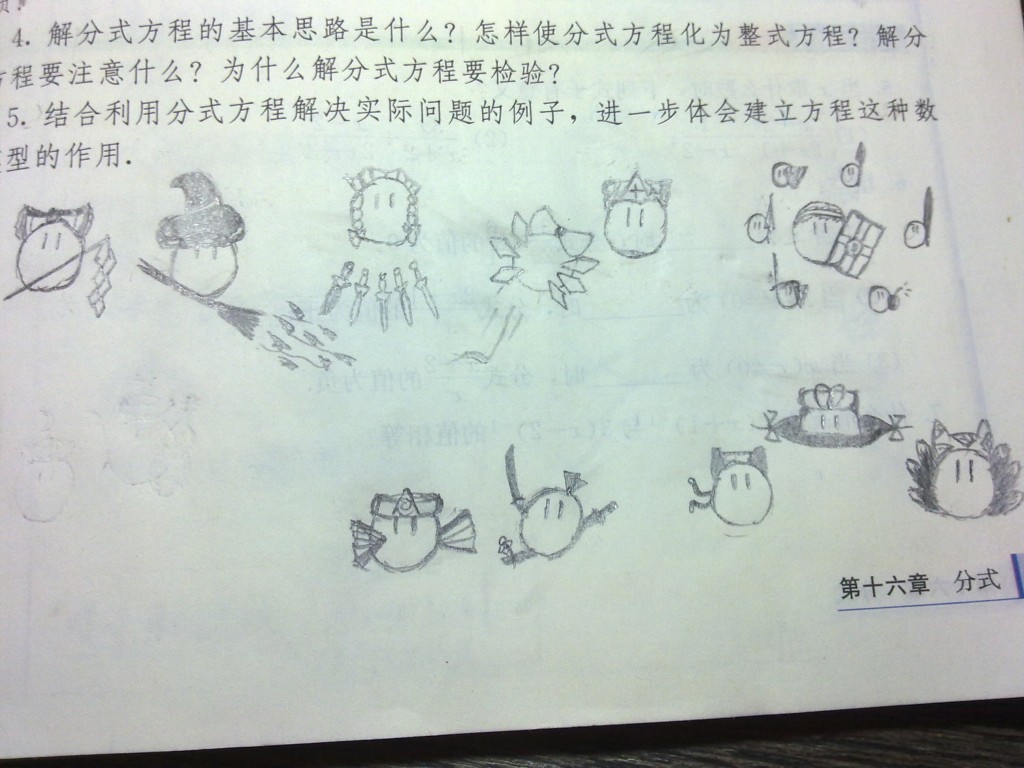 4. 解分式方程的基本思路是什么？怎样使分式方程化为整式方程？解分
程要注意什么？为什么解分式方程要检验？
5. 结合利用分式方程解决实际问题的例子，进一步体会建立方程这种数
型的作用．
第十六章 分式